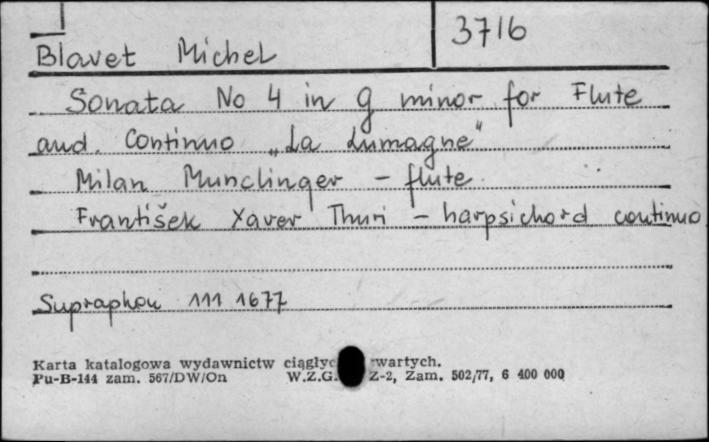 3716
Blavet Michel
Sonata No 4 in g minor for Flute
and. Continuo „La Lumagne"
Milan Munclinger - flute
František Xaver Thuri - harpsichord continuo
Supraphon 111 1677
Karta katalogowa wydawnictw wartych.
Pu-B-144 zam. 567/DW/On W.Z.G. Z-2, Zam. 502/77, 6 400 000